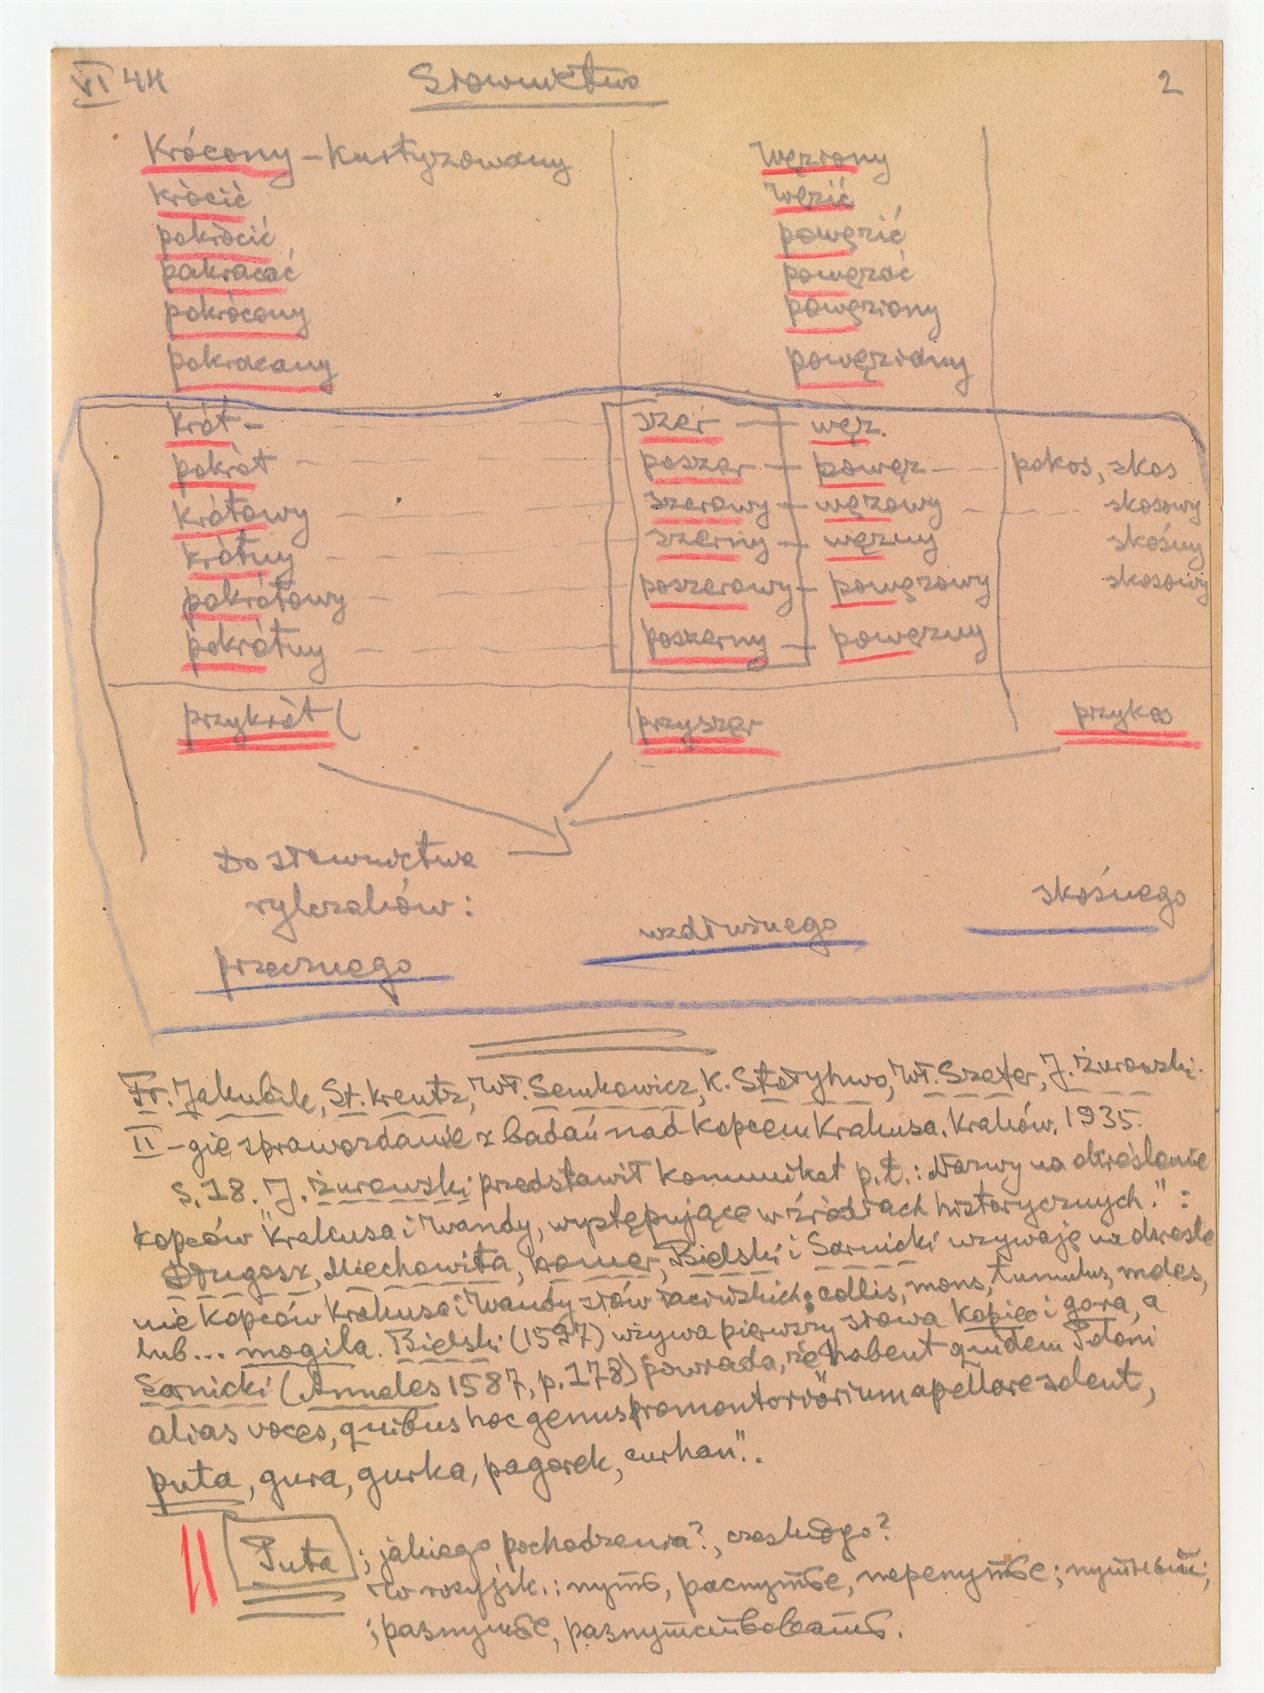 VI 44 Słownictwo 2
Krócony – Kurtyzowany Wężiony
krócić Węzić
pokrócić powęzić
pokracać powęzać
pokrócony powęziony
pokracany powęziany
krót – szer – węz.
pokrót – poszer – powęz – pokos, skos
krótowy – szerowy – węzowy – skosowy
krótny – szerny – węzny skośny
pokrótowy – poszerowy – powęzowy skosowy
pokrótny – poszerny – powęzny
przykrót ( przyszer przykos
Do słownictwa
rylczaków: skośnego
przecznego wzdłużnego
Fr. Jakubik, St. Kreutz, Wł. Semkowicz, K. Stołyhwo, Wł. Szafer, J. Żurowski.
II-gie sprawozdanie z badań nad Kopcem Krakusa. Kraków. 1935.
S. 18. J. Żurowski przedstawił komunikat p.t.: Nazwy na określenie
kopców "Krakusa i Wandy, występujące w źródłach historycznych.":
Długosz, Miechowita, Kromer, Bielski i Sarnicki używają na określe
nie kopców Krakusa i Wandy słów łacińskich: collis, mons, tumulus, moles,
lub... mogiła. Bielski (1597) używa pierwszy słowa kopiec i gora, a
Sarnicki (Annales 1587, p. 178) powiada, że "habent quidem Poloni
alias voces, quibus hoc genus promontoriorium apellare solent,
puta, gura, gurka, pagorek, curhan".
Puta; jakiego pochodzenia?, czeskiego?
w rosyjsk.: путь, распутье, перепутье; путный;
; разпутье, разпутствовать.